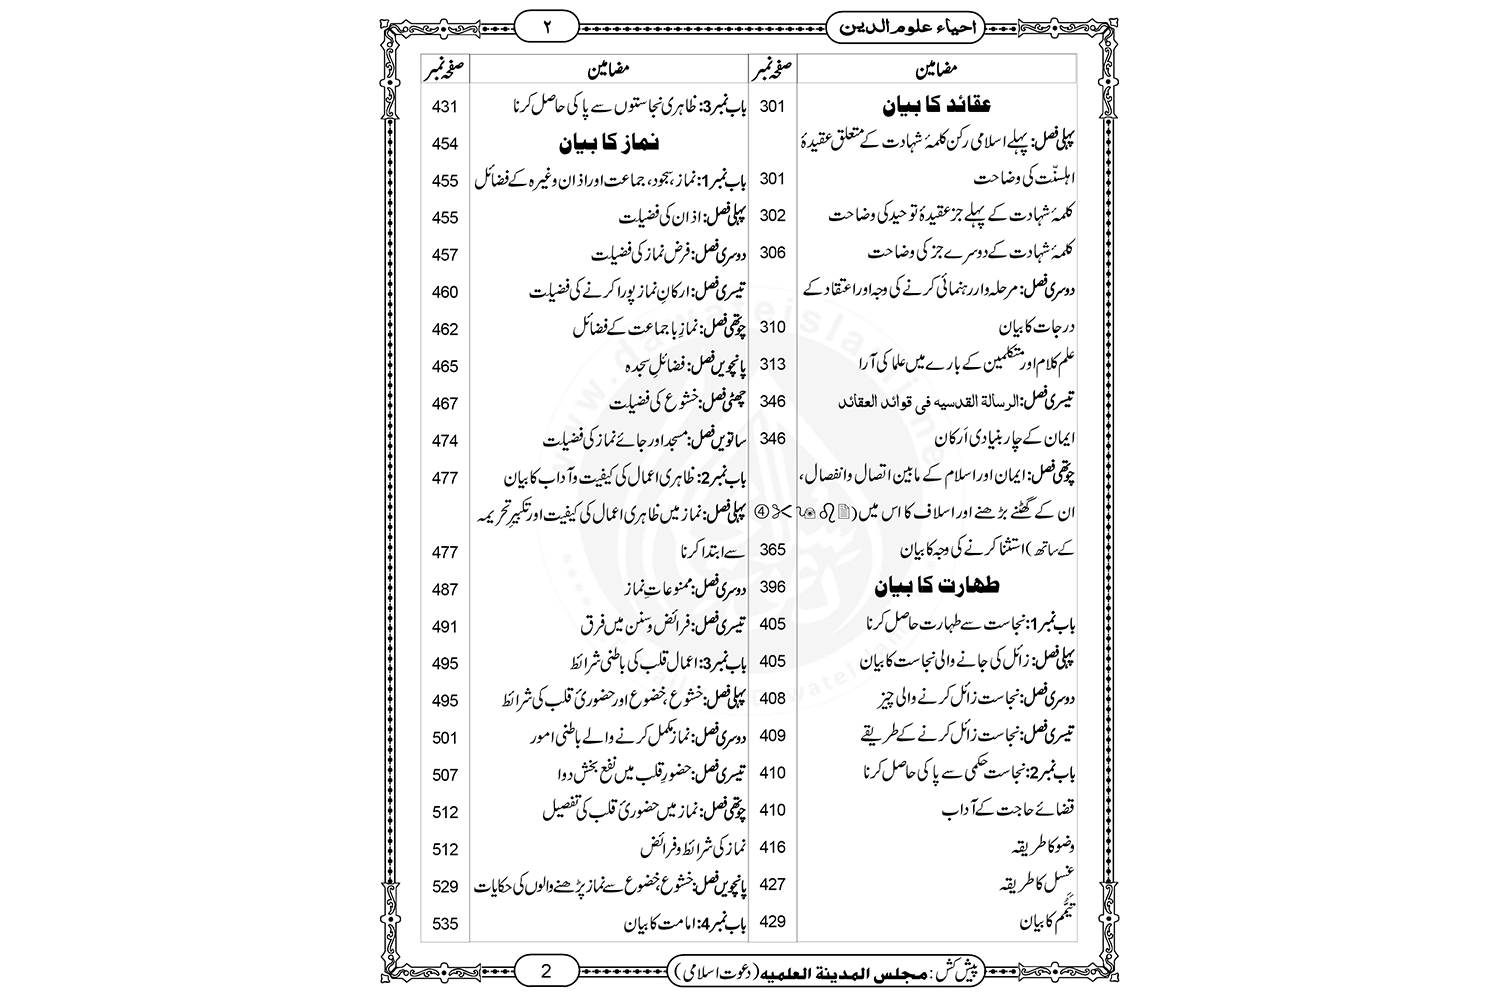 احیاء علوم الدین
۲
مضامین
صفحہ نمبر
عقائد کا بیان
301
پہلی فصل: پہلے اسلامی رکن کلمۂ شہادت کے متعلق عقیدۂ
اہلسنّت کی وضاحت
301
کلمۂ شہادت کے پہلے جز عقیدۂ توحید کی وضاحت
302
کلمۂ شہادت کے دوسرے جز کی وضاحت
306
دوسری فصل: مرحلہ وار رہنمائی کرنے کی وجہ اور اعتقاد کے
درجات کا بیان
310
علم کلام اور متکلمین کے بارے میں علما کی آرا
313
تیسری فصل: الرسالة القدسیه فی قوائد العقائد
346
ایمان کے چار بنیادی اَرکان
346
چوتھی فصل: ایمان اور اسلام کے مابین اتصال وانفصال،
ان کے گھٹنے بڑھنے اور اسلاف کا اس میں(
کے ساتھ) استثنا کرنے کی وجہ کا بیان
365
طهارت کا بیان
396
باب نمبر1: نجاست سے طہارت حاصل کرنا
405
پہلی فصل: زائل کی جانے والی نجاست کا بیان
405
دوسری فصل: نجاست زائل کرنے والی چیز
408
تیسری فصل: نجاست زائل کرنے کے طریقے
409
باب نمبر2: نجاست حکمی سے پاکی حاصل کرنا
410
قضائے حاجت کے آداب
410
وضو کا طریقہ
416
غسل کا طریقہ
427
تیمّم کا بیان
429
مضامین
صفحہ نمبر
باب نمبر3: ظاہری نجاستوں سے پاکی حاصل کرنا
431
نماز کا بیان
454
باب نمبر1: نماز، سجود، جماعت اور اذان وغیرہ کے فضائل
455
پہلی فصل: اذان کی فضیلت
455
دوسری فصل: فرض نماز کی فضیلت
457
تیسری فصل: ارکانِ نماز پورا کرنے کی فضیلت
460
چوتھی فصل: نمازِ باجماعت کے فضائل
462
پانچویں فصل: فضائلِ سجدہ
465
چھٹی فصل: خشوع کی فضیلت
467
ساتویں فصل: مسجد اور جائے نماز کی فضیلت
474
باب نمبر2: ظاہری اعمال کی کیفیت و آداب کا بیان
477
پہلی فصل: نماز میں ظاہری اعمال کی کیفیت اور تکبیرِ تحریمہ
سے ابتدا کرنا
477
دوسری فصل: ممنوعاتِ نماز
487
تیسری فصل: فرائض و سنن میں فرق
491
باب نمبر3: اعمال قلب کی باطنی شرائط
495
پہلی فصل: خشوع، خضوع اور حضوریٔ قلب کی شرائط
495
دوسری فصل: نماز مکمل کرنے والے باطنی امور
501
تیسری فصل: حضورِ قلب میں نفع بخش دوا
507
چوتھی فصل: نماز میں حضوریٔ قلب کی تفصیل
512
نماز کی شرائط و فرائض
512
پانچویں فصل: خشوع، خضوع سے نماز پڑھنے والوں کی حکایات
529
باب نمبر4: امامت کا بیان
535
پیش کش: مجلس المدینة العلمیه (دعوت اسلامی)
2